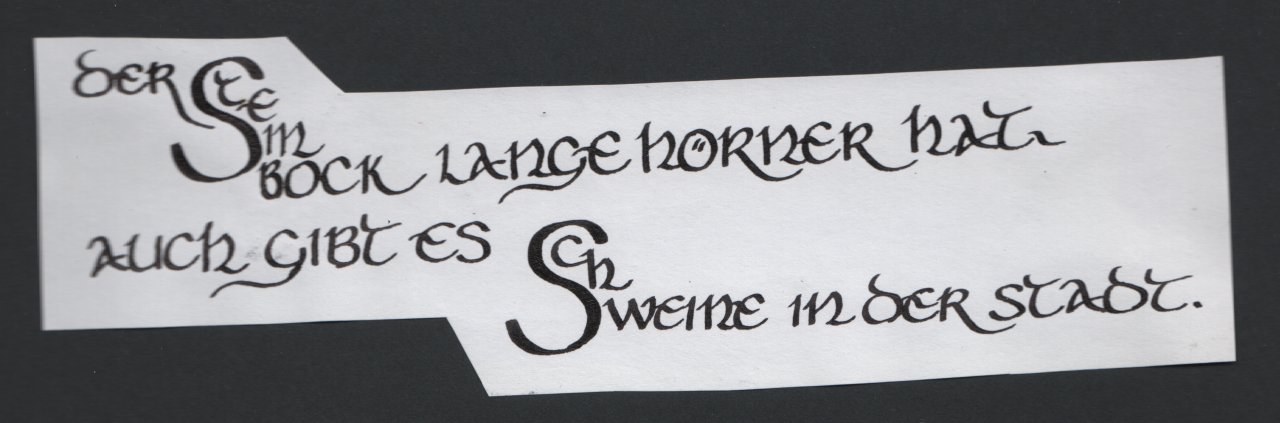 der Steinbock lange Hörner hat.
auch gibt es Schweine in der Stadt.